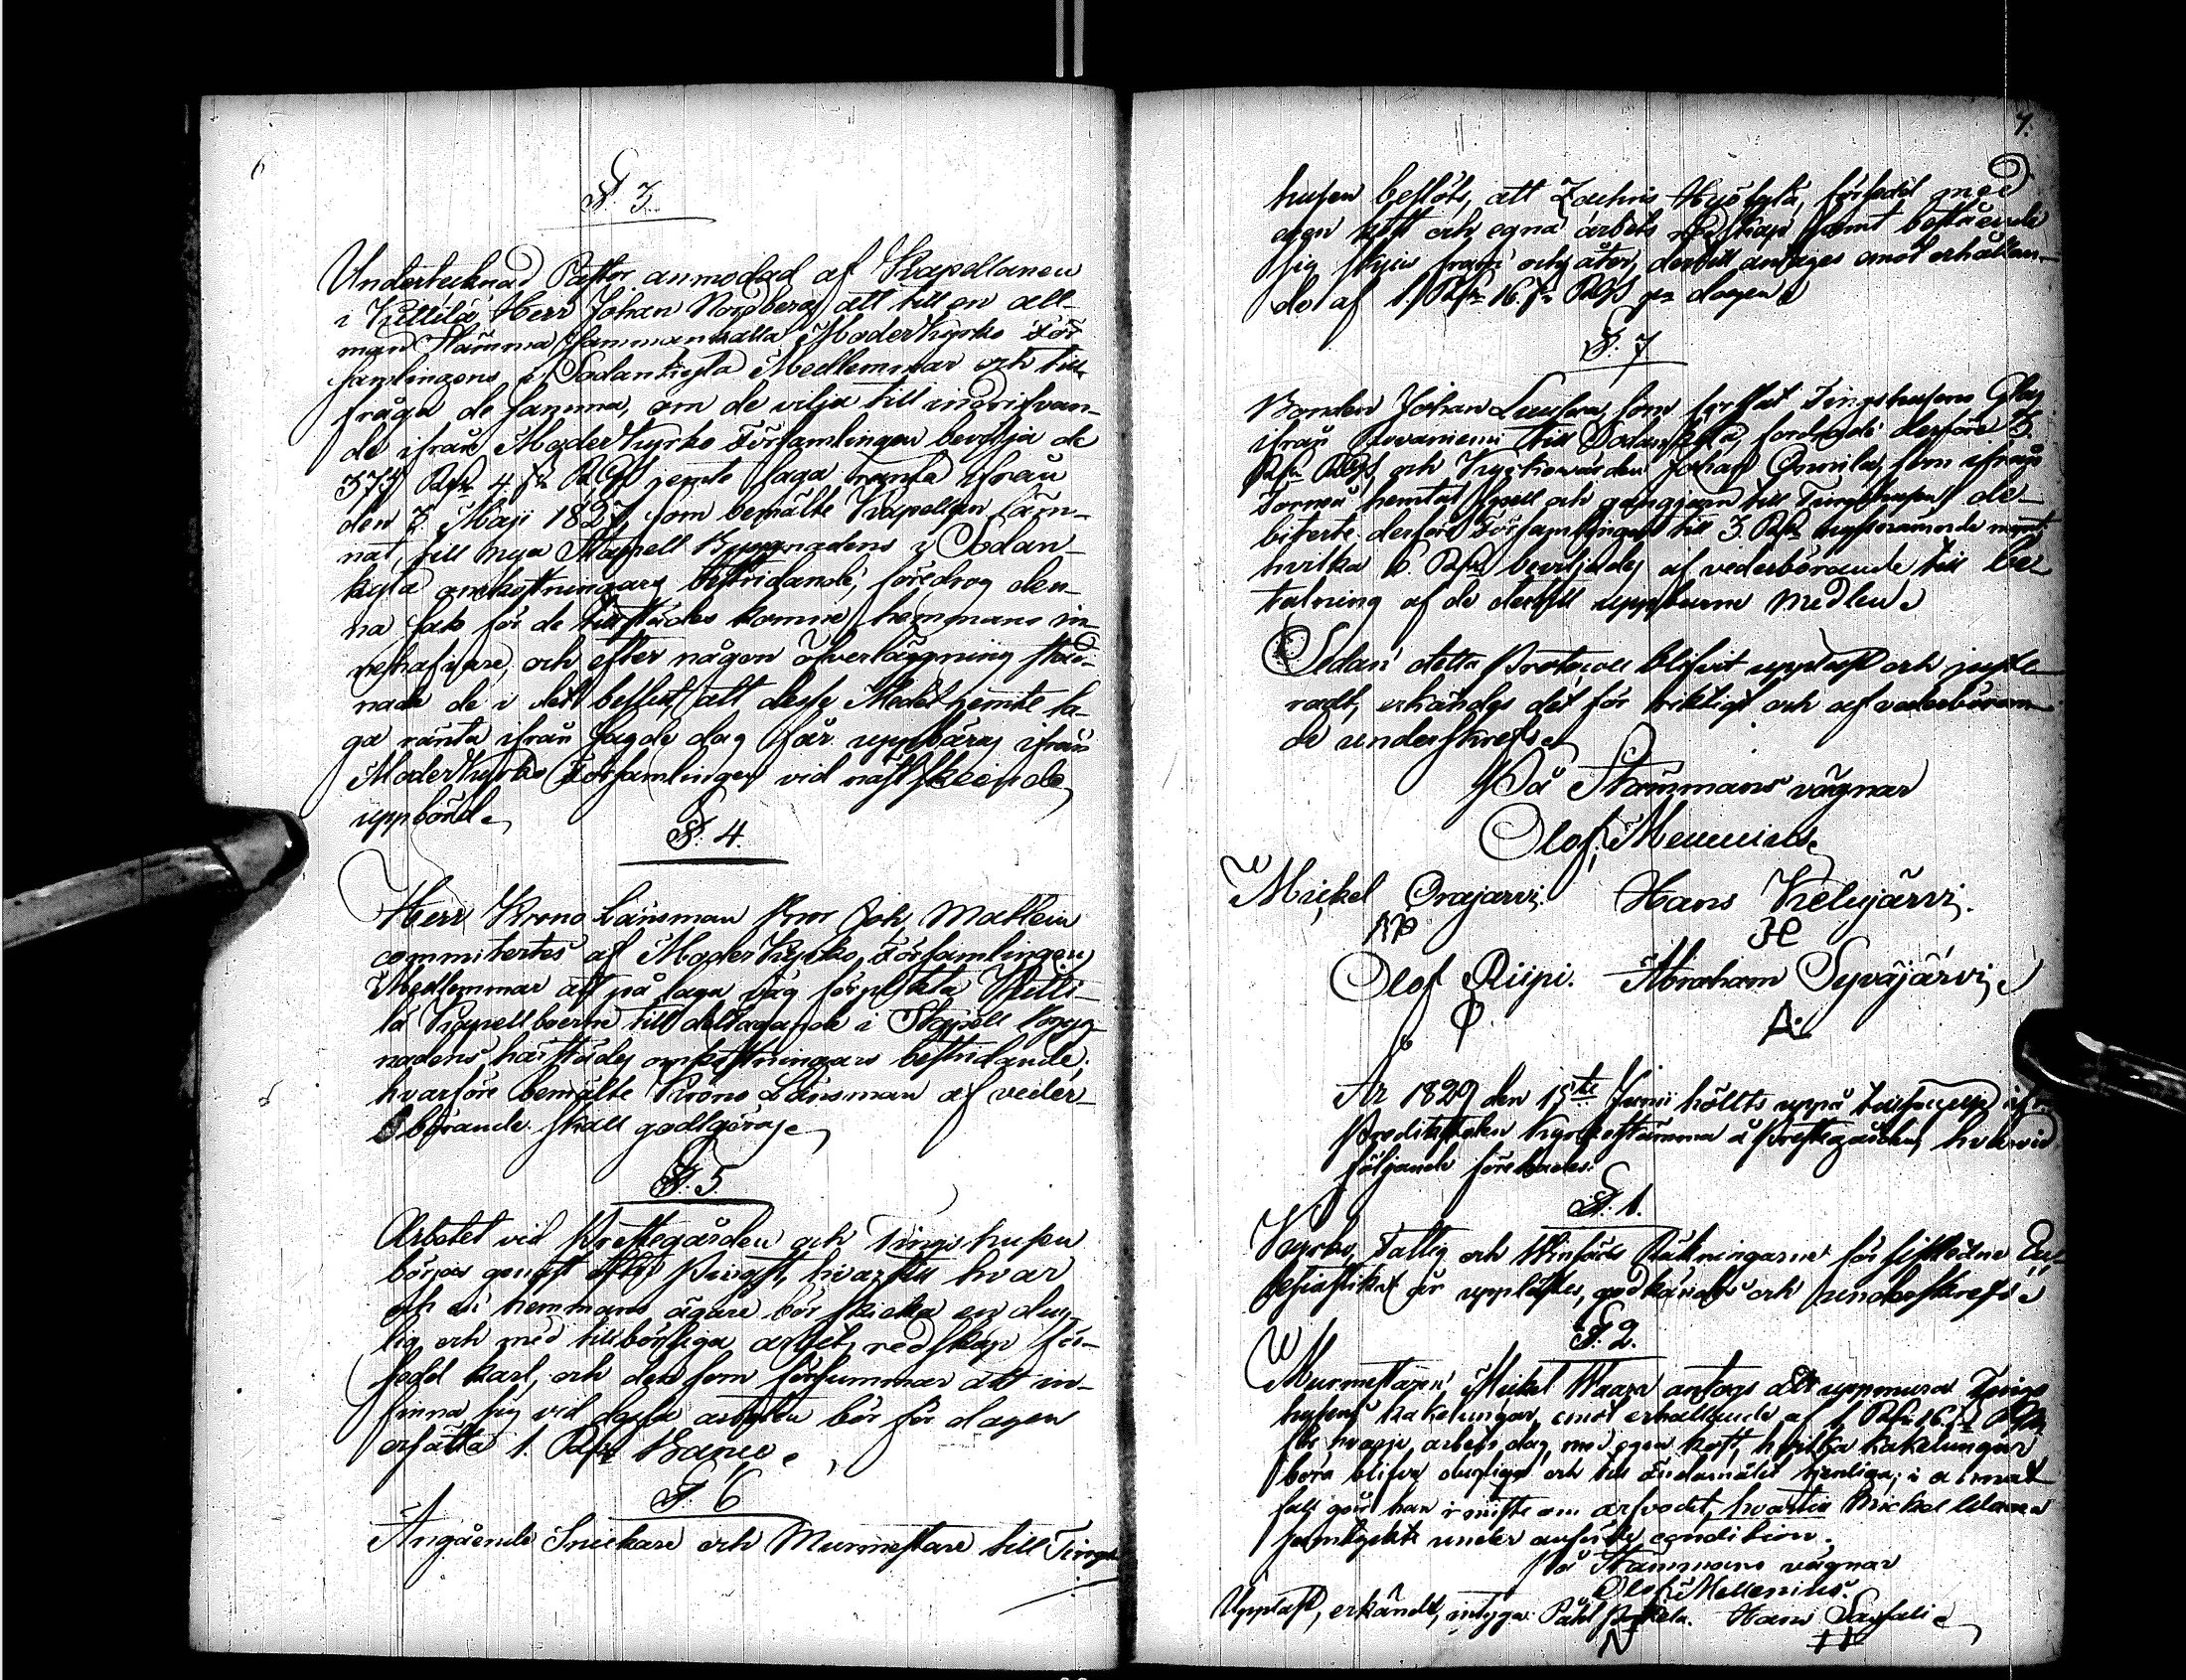 6
§. 3.
Undertecknad Pastor anmodad af Kapellanen
i Kittilä Herr Johan Nordberg att till en all-
män Stämma sammankalla Moderkyrko För
samlingens i Sodankylä Medlemmar och till
fråga de samma, om de vilja till indrifvan-
de ifrån Moderkyrko Församlingen bevilja de
373 Rdr 4 s. RGs jemte laga ränta ifrån
den 7 Maji 1827, som bemälte Kapellan läm-
nat till nya Stapell Byggnadens i Sodan-
kylä omkostningars bestridande, föredrog den-
na sak för de tillstädes komne hemmans in-
nehafvare, och efter någon öfverläggning stad-
nade de i det beslut, att desse Medel jemte la-
ga ränta ifrån sagde dag får uppbäras ifrån
Moderkyrko Församlingen vid näst skeende
uppbörd.
§. 4.
Herr Krono Länsman Joh. Mathlein
committertes af Moderkyrko Församlingens
Medlemmar att på laga väg förplikta Kitti-
lä Kapellboerne till deltagande i Stapell bygg-
nadens härstädes omkostningars bestridande;
hvarföre bemälte Krono Länsman af veder-
börande skall godtgöras.
§. 5.
Arbetet vid Prestegården och Tings husen
börjas genast efter Pingst, hvartill hvar
och en hemmans ägare bör skicka en dug-
lig och med tillbörliga arbets redskap för-
sedd karl, och den som försummar att in-
finna sig vid dessa arbeten bör för dagen
ersätta 1. Rdr Banco.
§. 6
Angående Snickare och Murmestare till Tings
7.
husen beslöts, att Zachris Kyökylä, försedd med
egen kost och egna arbets redskap samt bestående
sig skjuts fram och åter, dertill antages emot erhållan-
de af 1. Rdr 16 s. RGs per dagen.
§. 7
Bonden Johan Luusua, som forslat Tingshusens Glas
ifrån Rovaniemi till Sodankylä, fordrade derföre 3.
Rdr RGs, och Kyrkovärden Johan Onnila, som ifrån
Torneå hemtat spjell och gångjern till Tingshusen de-
biterte derföre Församlingen till 3. Rdr myntt
hvilka 6. Rdr beviljades af vederbörande till be-
talning af de dertill uppburne medlen.
Sedan detta Protocoll blifvit uppläst och juste-
radt, erkändes det för riktigt och af vederböran-
de underskrefs.
På Stämmans vägnar
Olof Mellenius.
Mickel Orajärvi. Hans Kelujärvi.
Olof Riipi. Abraham Syväjärvi.
År 1829 den 15de Junii hölts uppå
Predikstolen kyrkostämma å Prestegården, hvarvid
följande förehades:
§. 1.
Kyrko, Fattig och Räkningarne för sistledne Ecc-
lesiastikt år upplästes, godkändes och underskrefs.
§. 2.
Murmestaren Mickel Waara antogs att uppmura Tings
husens kakelugnar, emot erhållande af 1. Rdr 16 s. RGs
för hvarje arbets dag, med egen kost, hvilka kakelugnar
böra blifva dugliga och till ändamålet tjenliga; i annat
fall går han i miste om arfvodet, hvartill Mickel Waara
samtyckte under anförde condition.
På Stämmans vägnar
Olof Mellenius.
Uppläst, erkändt, intyga: Påhl Hans